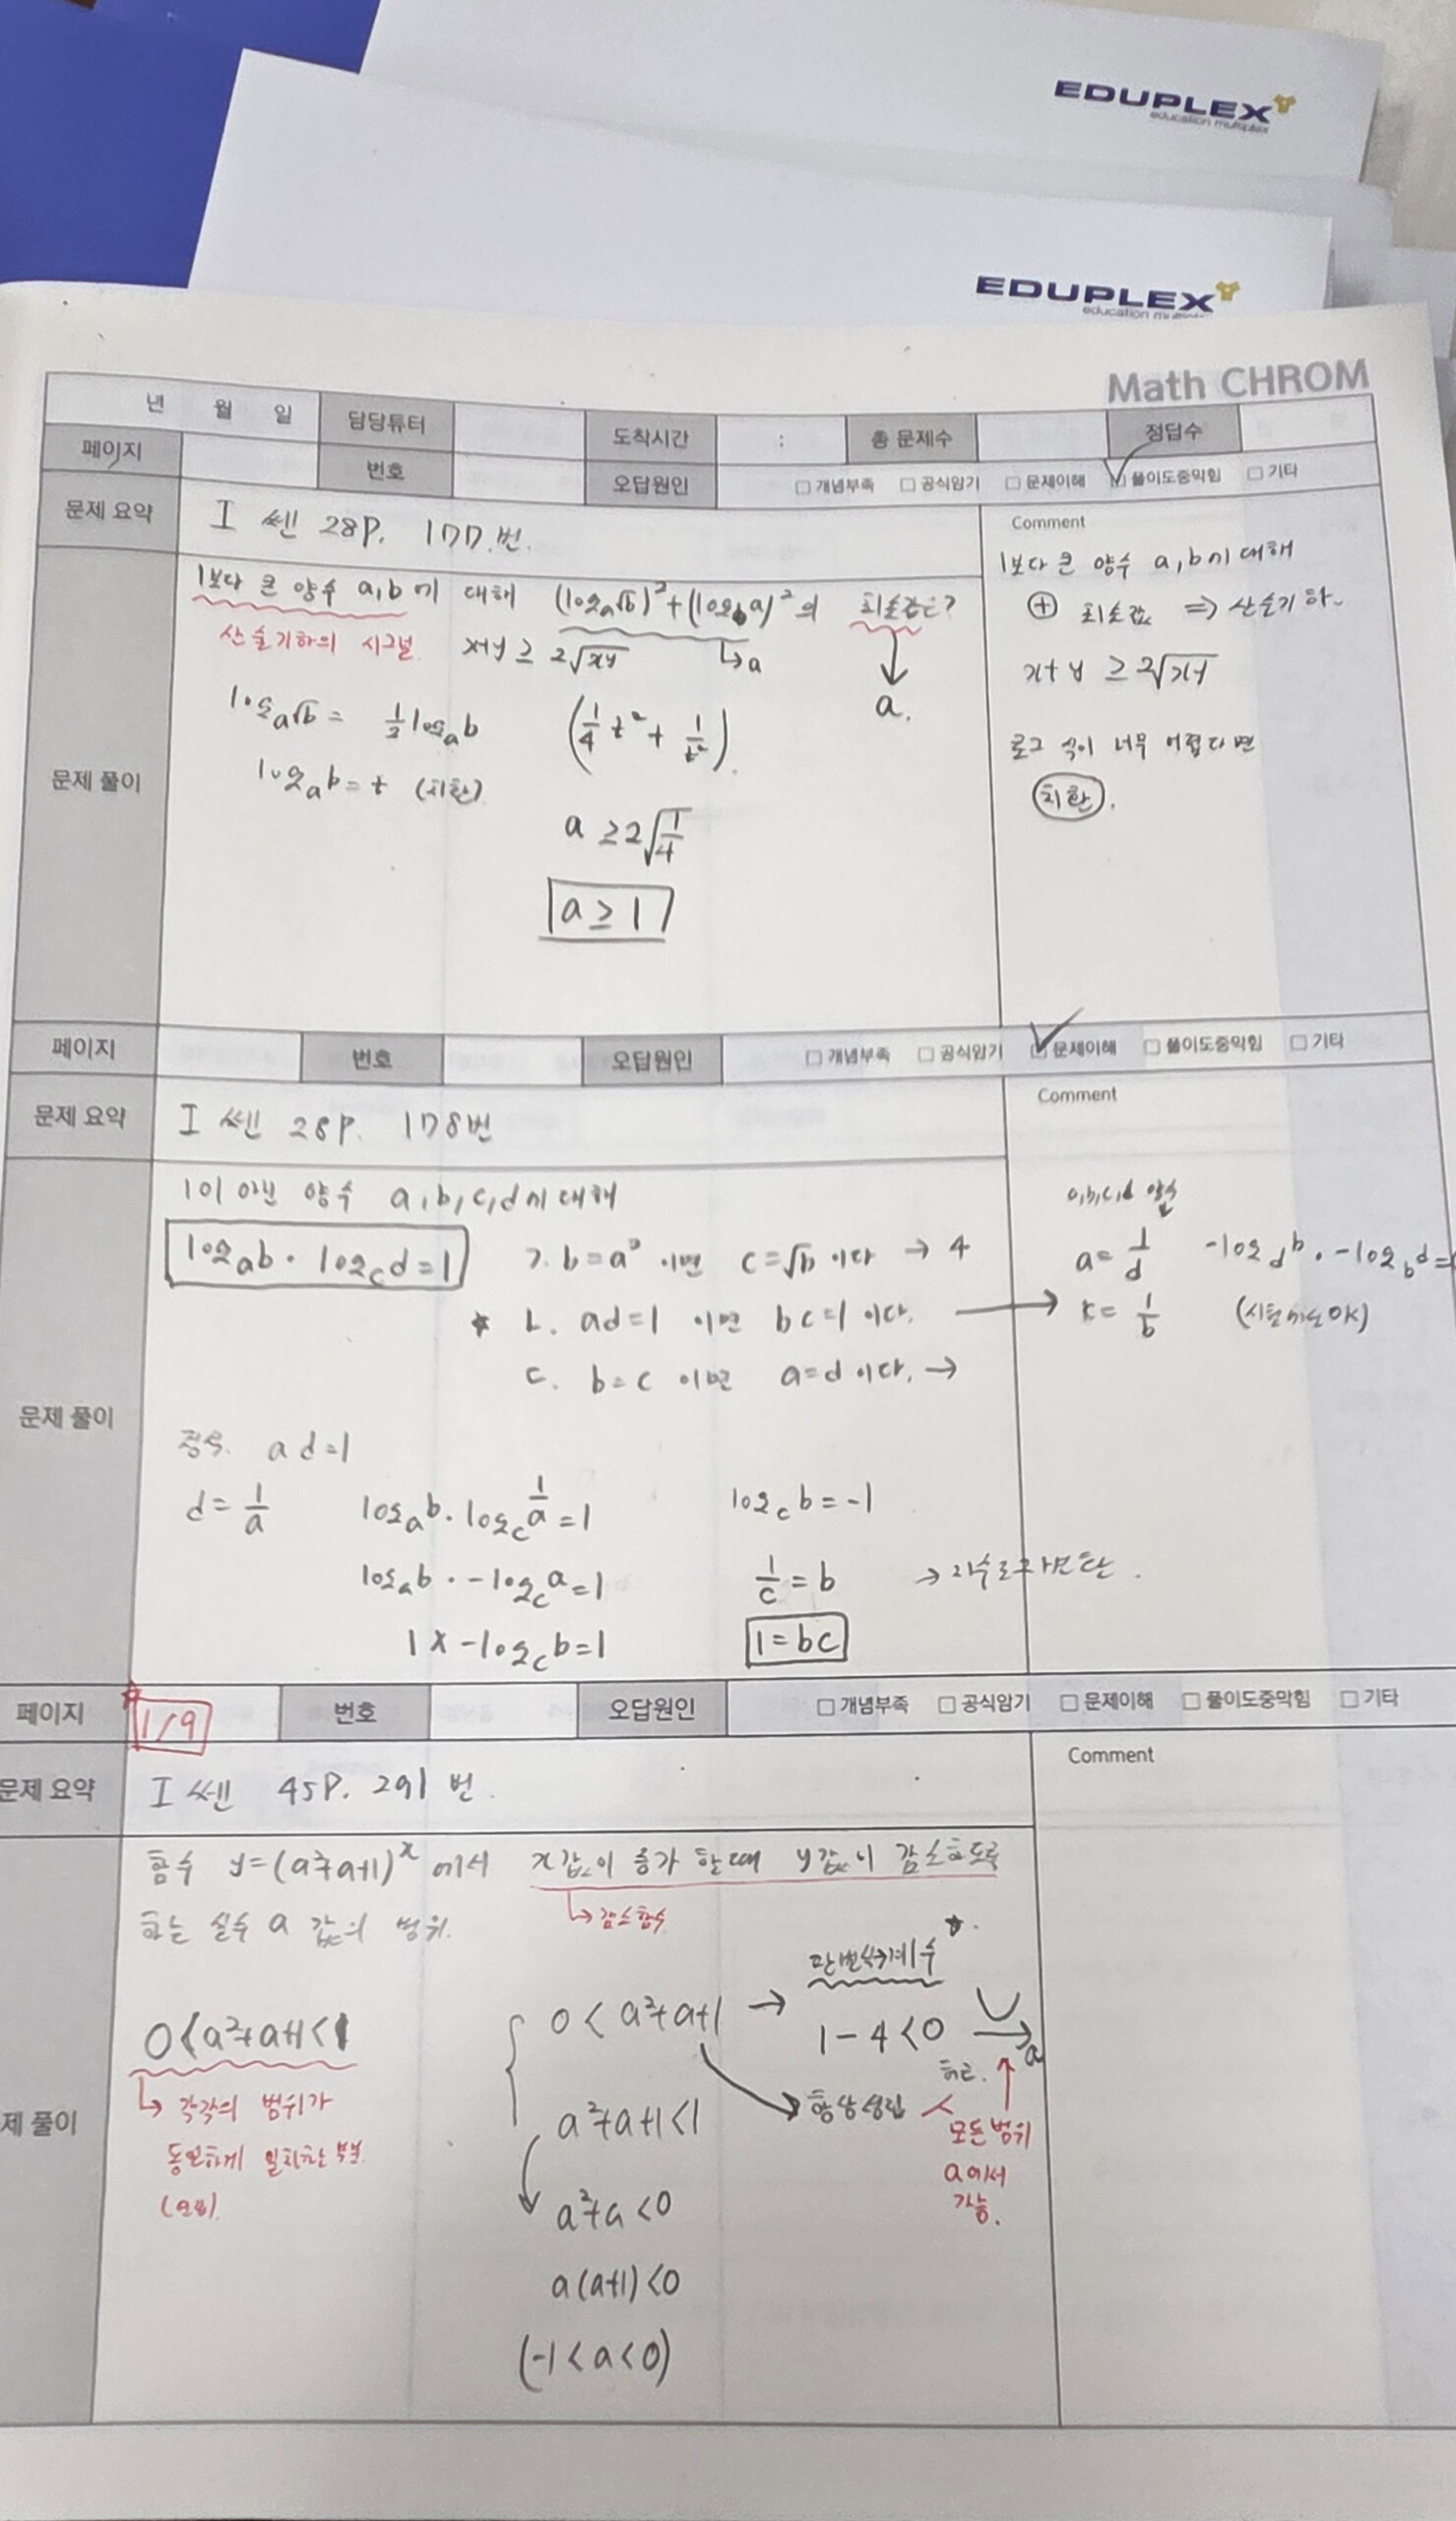 EDUPLEX
education multiplex
EDUPLEX
education
Math CHROM
년 월 일 담당튜터 도착시간 : 총 문제수 정답수
페이지 번호 오답원인 □ 개념부족 □ 공식암기 □ 문제이해 ☑ 풀이도중막힘 □ 기타
문제 요약 I 쎈 28P. 177.번.
Comment
1보다 큰 양수 a,b에 대해
⊕ 최소값 ⇒ 산술기하.
x+y ≥ 2√xy
로그 식이 너무 어렵다면
치환.
문제 풀이
1보다 큰 양수 a,b에 대해 (log_a√b)²+(log_b a)²의 최솟값은?
산술기하의 시그널. x+y ≥ 2√xy ↳a ↓
a.
log_a√b = 1/2 log_a b (1/4 t² + 1/t²).
log_a b = t (치환)
a ≥ 2√1/4
a ≥ 1
페이지 번호 오답원인 □ 개념부족 □ 공식암기 ☑ 문제이해 □ 풀이도중막힘 □ 기타
문제 요약 I 쎈 28P. 178번
Comment
a,b,c,d 양수
a = 1/d -log_d b · -log_b d =
c = 1/b
문제 풀이
1이 아닌 양수 a,b,c,d에 대해
log_a b · log_c d = 1
ㄱ. b=a² 이면 c=√b 이다 →
* ㄴ. ad=1 이면 bc=1 이다. →
ㄷ. b=c 이면 a=d 이다. →
ad=1
d = 1/a log_a b · log_c 1/a = 1 log_c b = -1
log_a b · -log_c a = 1 1/c = b →
1 x -log_c b = 1 1 = bc
페이지 1/9 번호 오답원인 □ 개념부족 □ 공식암기 □ 문제이해 □ 풀이도중막힘 □ 기타
문제 요약 I 쎈 45P. 291 번.
Comment
제 풀이
함수 y=(a²+a+1)^x 에서 x값이 증가 할때 y값이 감소하도록
하는 실수 a 값의 범위.
↳ 감소함수
0 < a²+a+1 < 1
↳ 각각의 범위가
동일하게 일치하는 부분.
0 < a²+a+1 →
1 - 4 < 0
a
항상성립
허근.
모든 범위
a에서
가능.
a²+a+1 < 1
a²+a < 0
a(a+1) < 0
(-1 < a < 0)